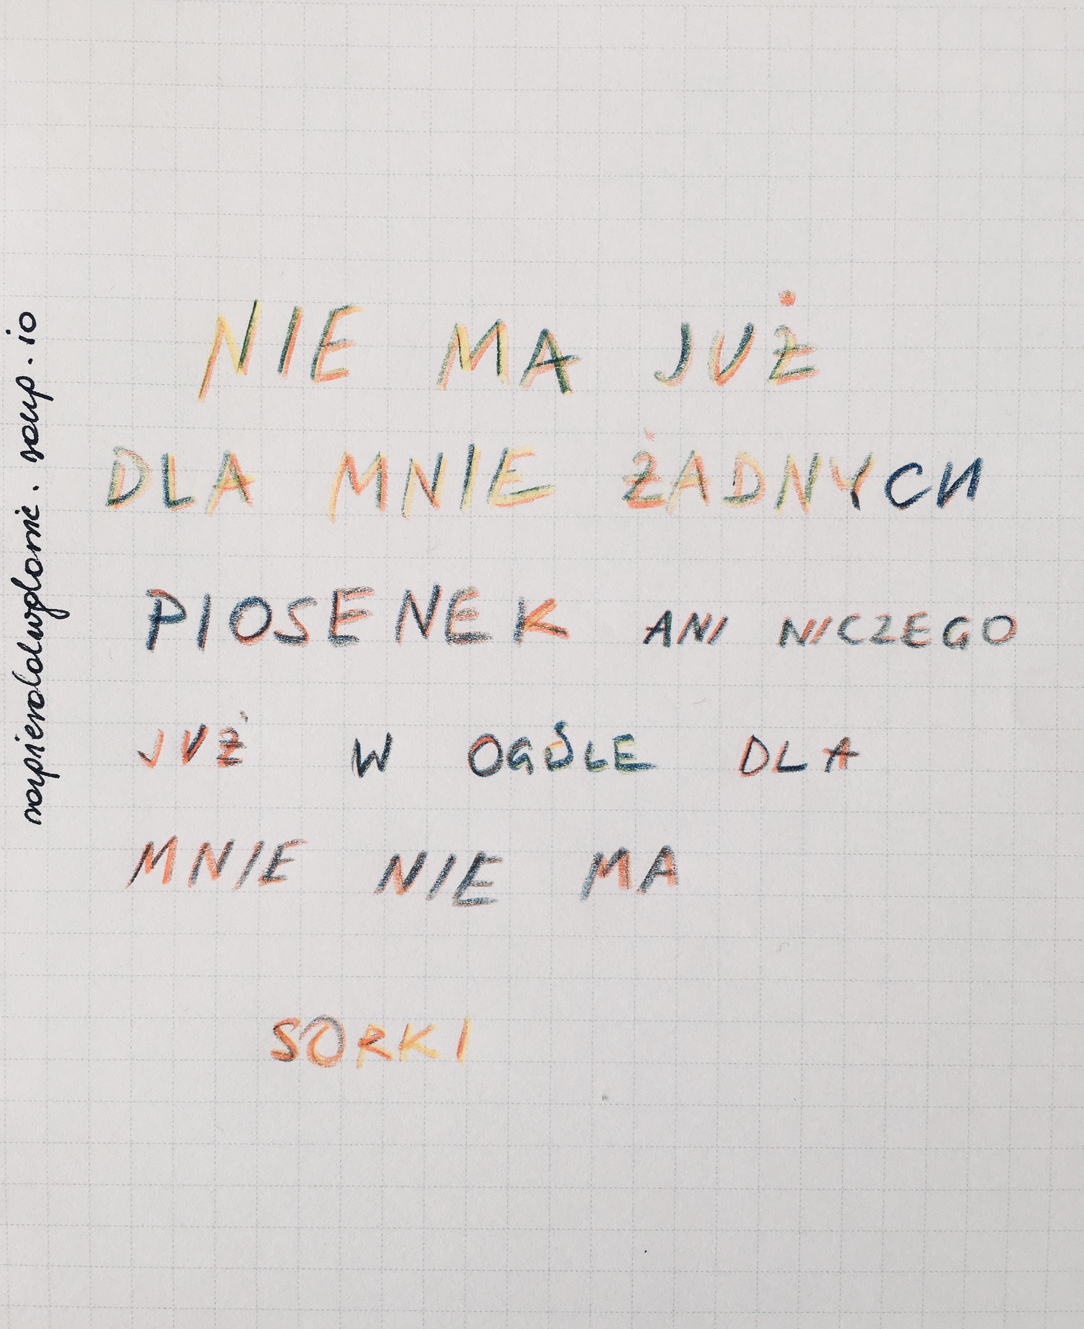 NIE MA JUŻ
DLA MNIE ŻADNYCH
PIOSENEK ANI NICZEGO
JUŻ W OGÓLE DLA
MNIE NIE MA
SORKI